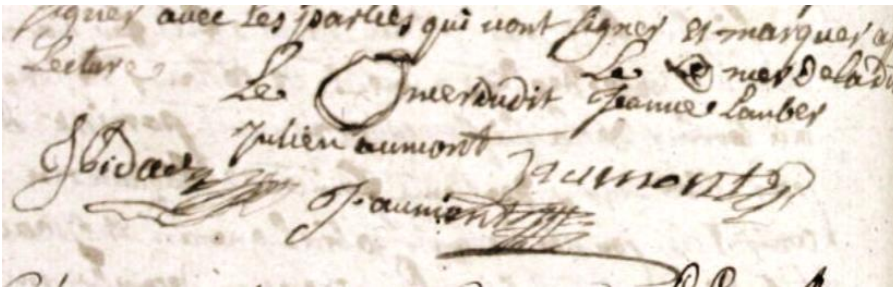 signer avec les parties qui vont signer et marquer
Lecture
Le merdudit Le merdeladi
Julien aumont Jeanne Lauber
Jbidard Jaumont
Jaumont